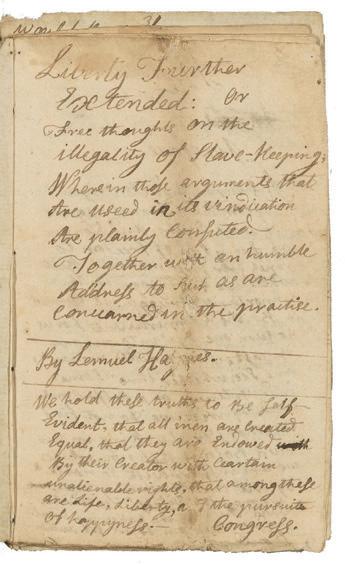 Liberty Further
Extended: Or
Free thoughts on the
illegality of Slave-keeping;
Wherein those arguments that
Are useed in its vindication
Are plainly confuted.
Together with an humble
Address to such as are
Concearned in the practise.
By Lemuel Haynes.
We hold these truths to be self-
Evident, that all men are created
Equal, that they are Endowed with
By their Creator with Ceartain
unalienable rights, that among these
are Life, Liberty, and the pursuit
of happyness.— Congress.